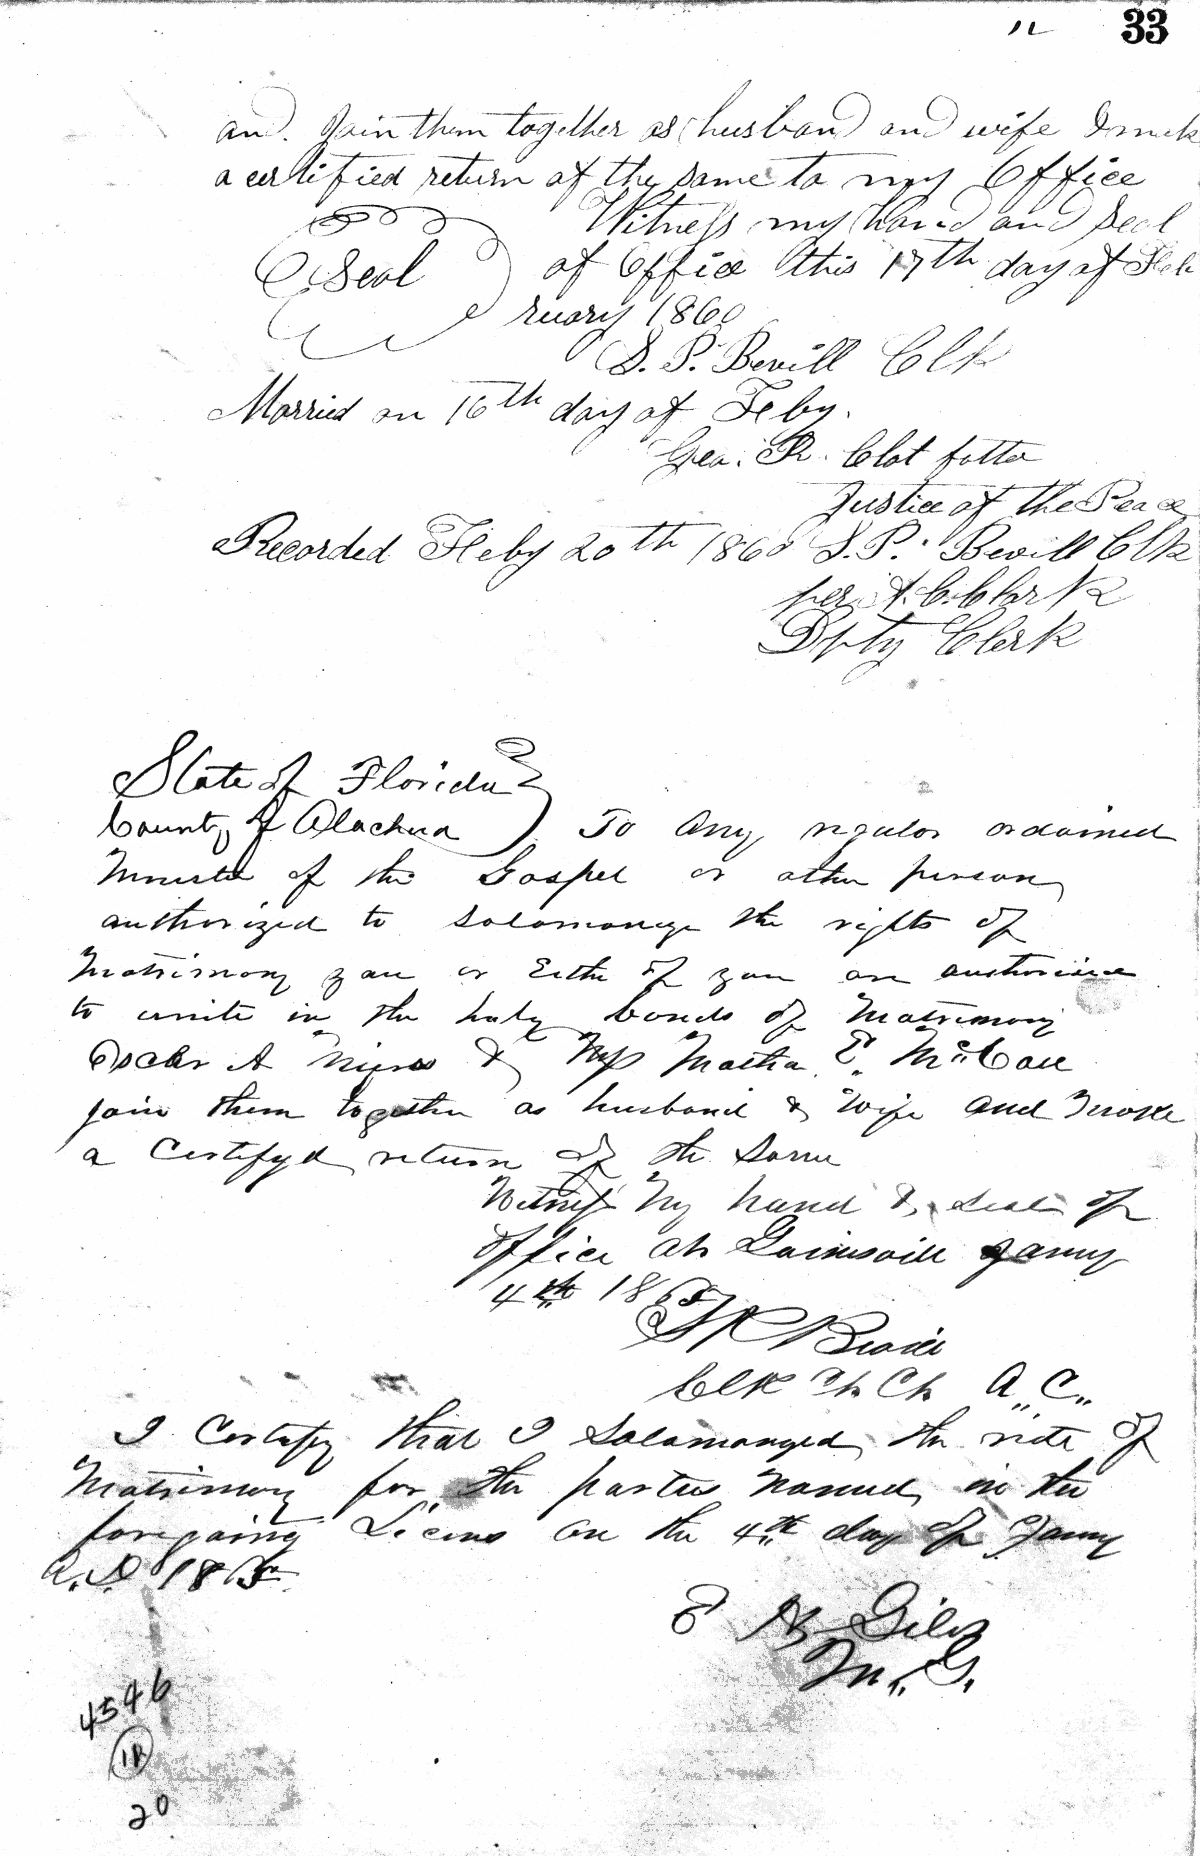 33
and. Join them together as husband and wife & mak
a certified return of the same to my Office
Witness my hand and Seal
Seal
of Office this 17th day of Feb
ruary 1860
S. P. Bevill Clk
Married on 16th day of Feby.
Geo. R.
Justice of the Peace
Recorded Feby 20th 1860 S. P. Bevill Clk
per A. C. Clark
Dpty Clerk
State of Florida
County of Alachua To any regular ordained
Minister of the Gospel or other person
authorized to Solamonize the rights of
Matrimony you or Either of you are authorised
to unite in the holy bonds of Matrimony
Oscar A & Miss Martha E. McCall
join them together as husband & wife and make
a Certifyd return of the Same
Witness My hand & Seal of
Office at Gainsvill Jany
4th 186
Clk A. C.
I Certify that I Solamonized the rite of
Matrimony for the parties named in the
foregoing Licens on the 4th day of Jany
A.D 186
E Giles
M. G.
4546
20